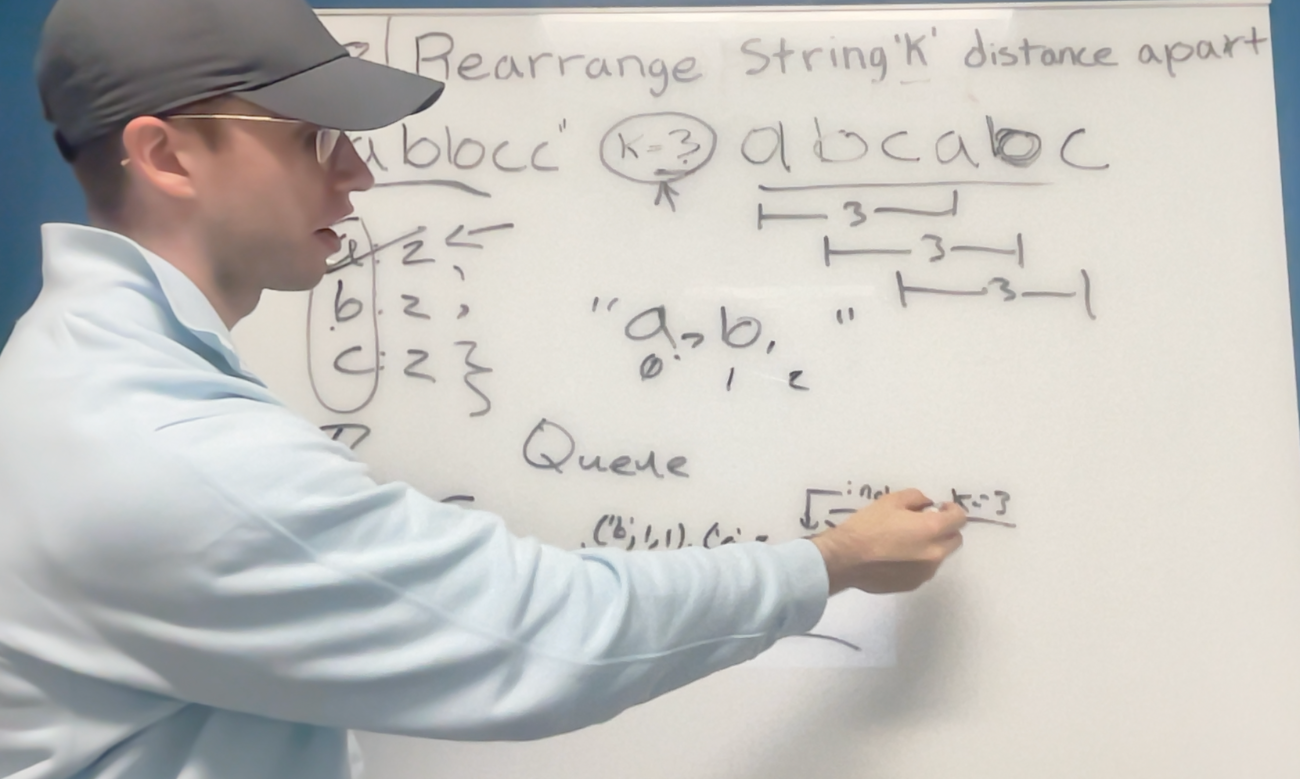 Rearrange String 'K' distance apart
abbcc" k=3 abcabc
3
a: 2 ← 3
b: 2, 3
c: 2 }
"a, b, "
0 1 2
Queue
k=3
('b', 1, 1), ('a'